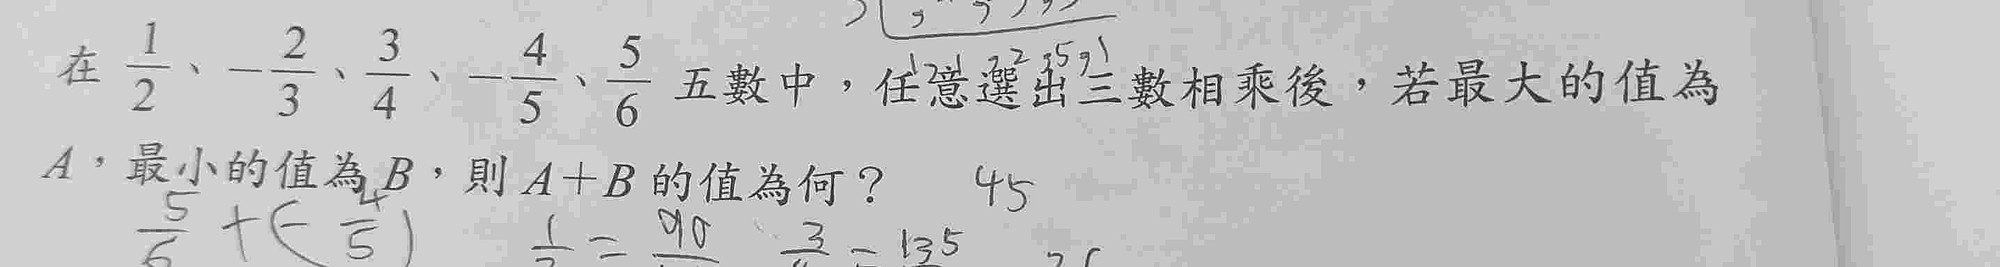 在 1/2、-2/3、3/4、-4/5、5/6 五數中，任意選出三數相乘後，若最大的值為
A，最小的值為 B，則 A+B 的值為何？ 45
5/6 +(-4/5) 1/2 = 90 3 = 135